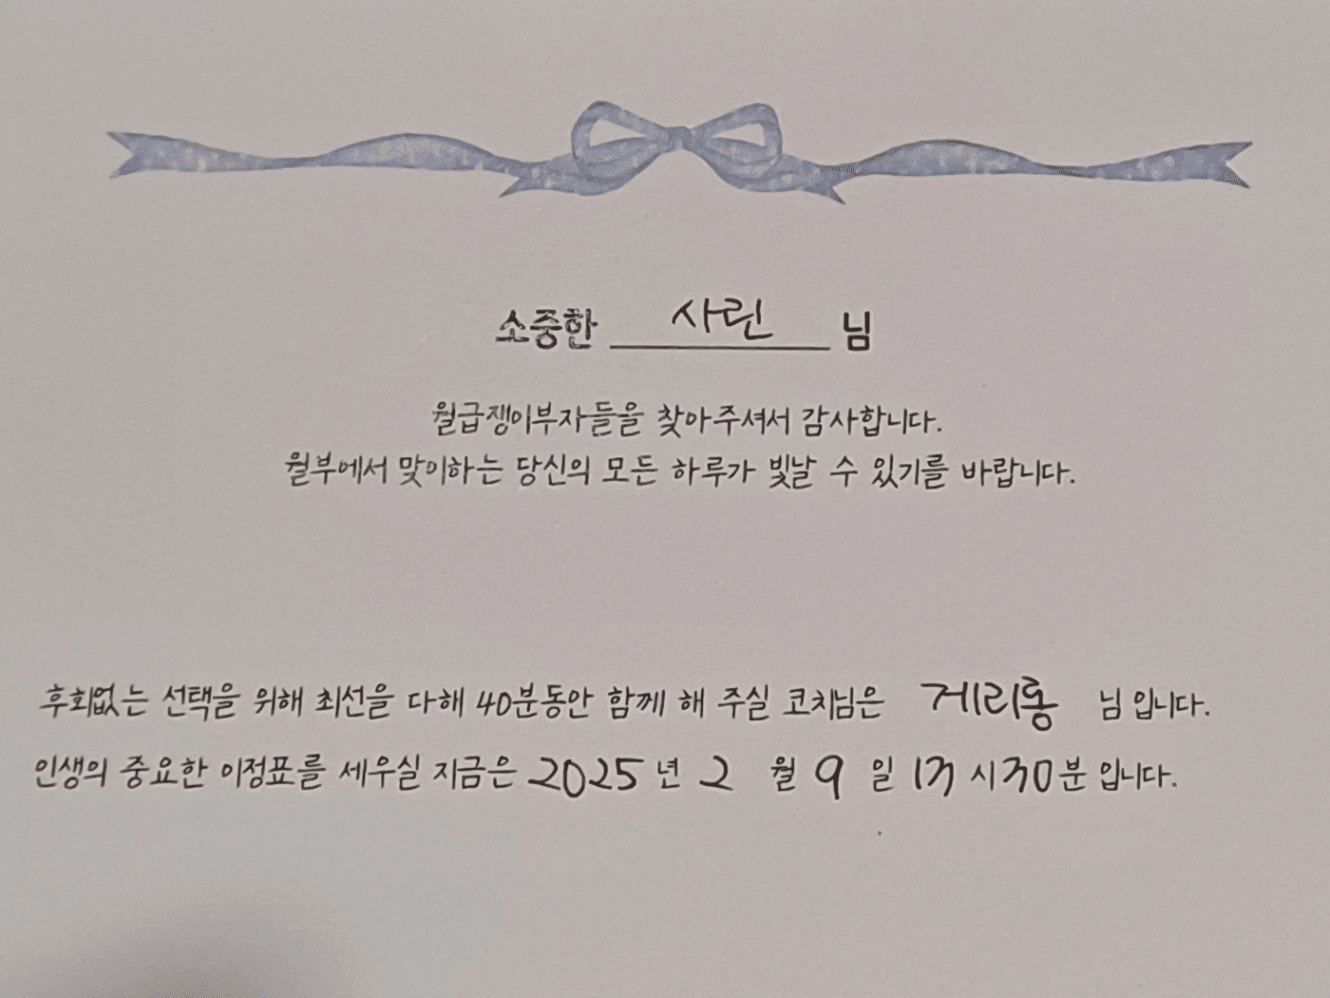 소중한 사린 님
월급쟁이부자들을 찾아주셔서 감사합니다.
월부에서 맞이하는 당신의 모든 하루가 빛날 수 있기를 바랍니다.
후회없는 선택을 위해 최선을 다해 40분동안 함께 해 주실 코치님은 게리롱 님 입니다.
인생의 중요한 이정표를 세우실 지금은 2025 년 2 월 9 일 시 분 입니다.